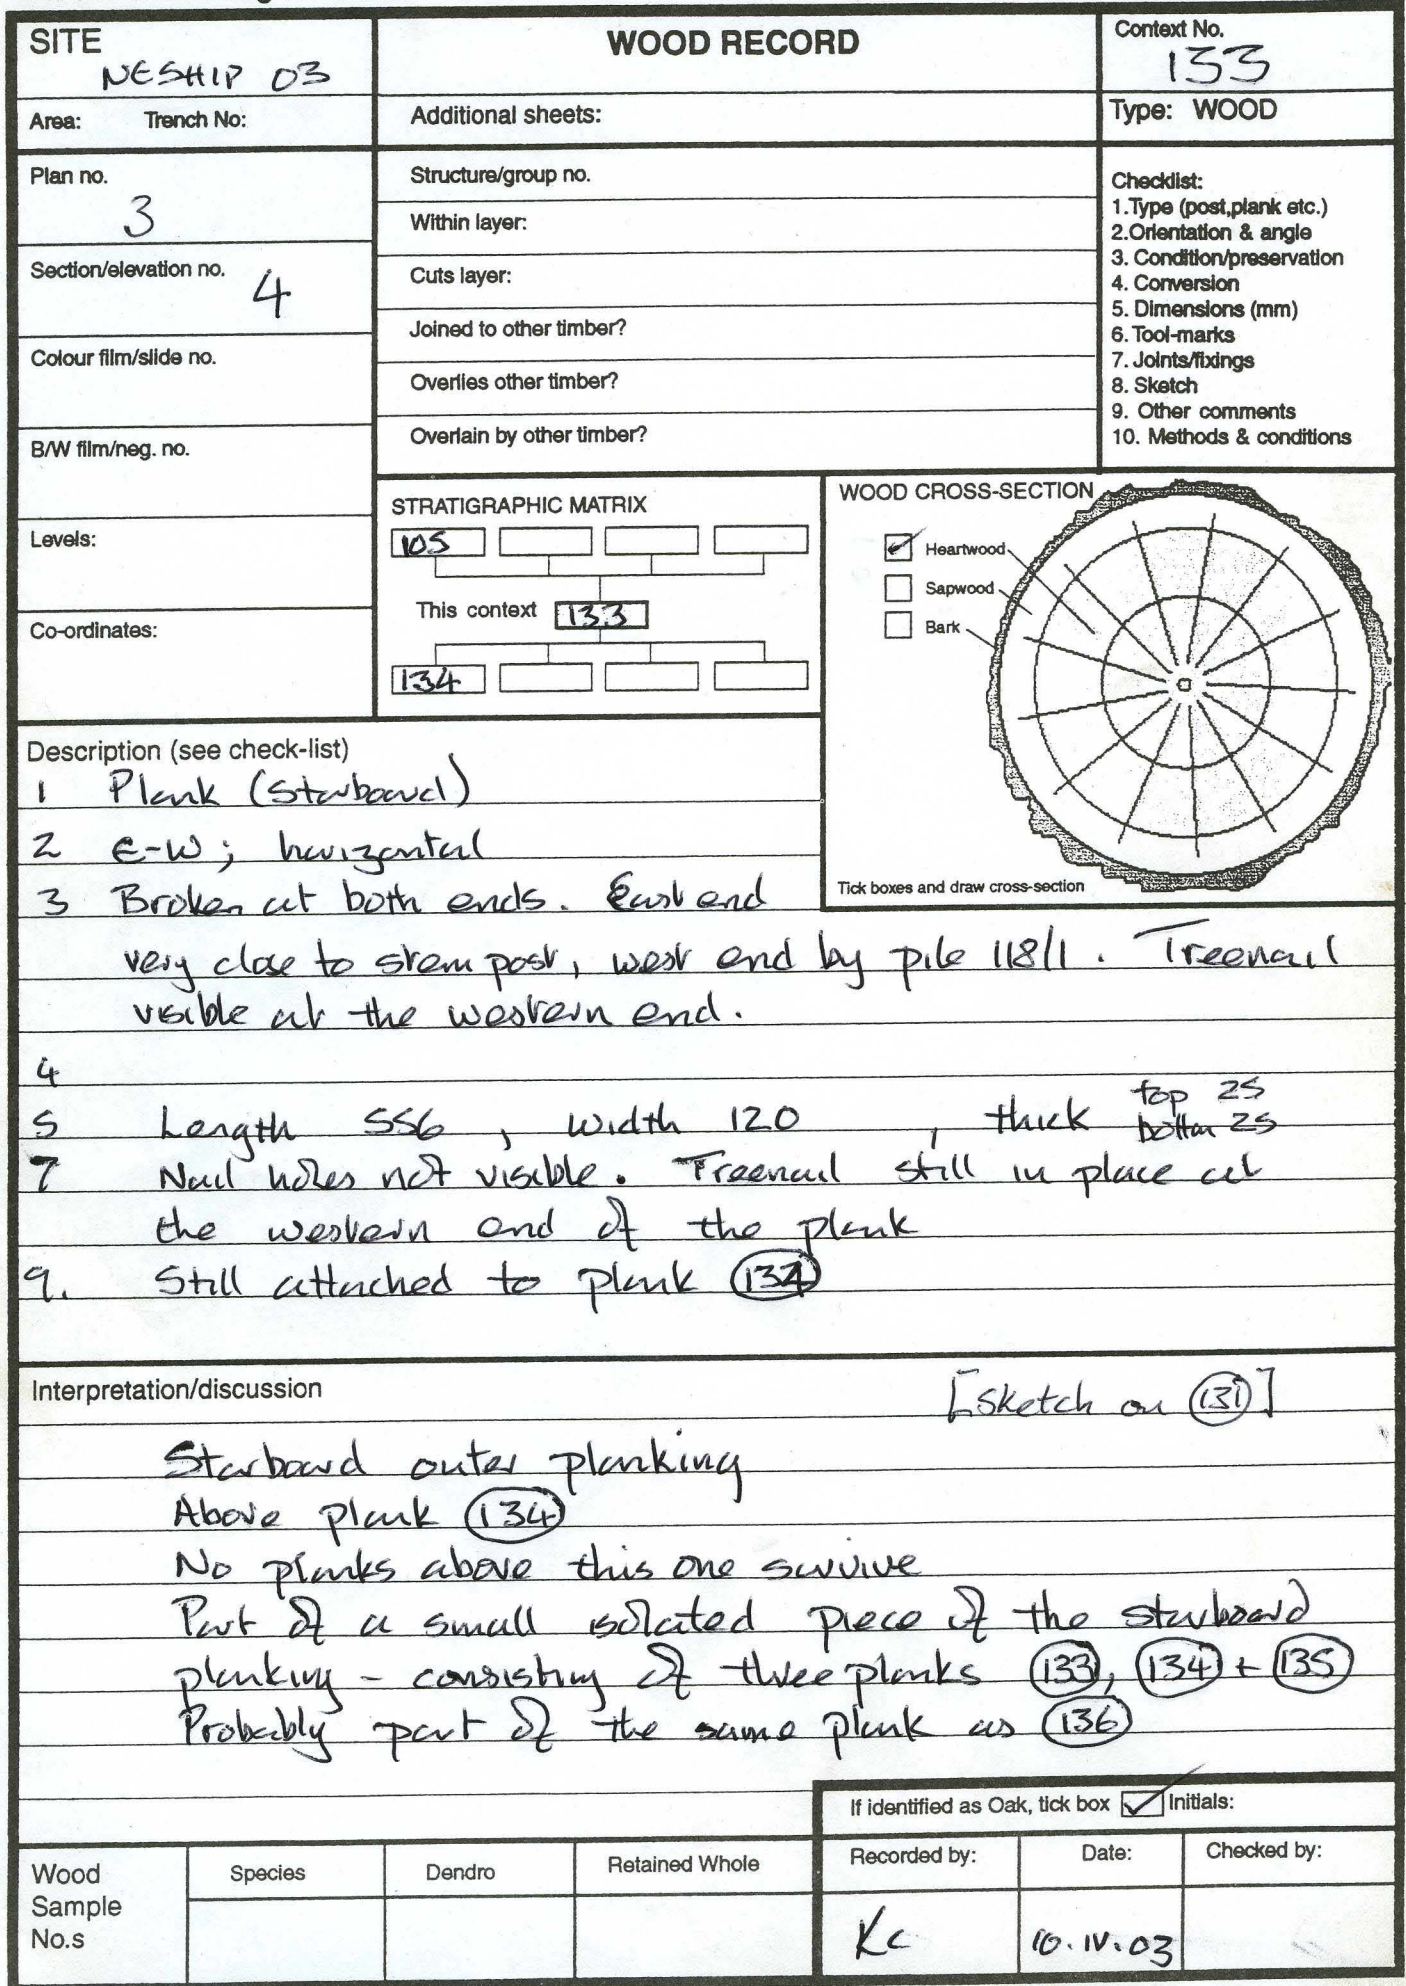 SITE
NESHIP 03
WOOD RECORD
Context No.
133
Area: Trench No:
Additional sheets:
Type: WOOD
Plan no.
3
Structure/group no.
Within layer:
Section/elevation no.
4
Cuts layer:
Joined to other timber?
Colour film/slide no.
Overlies other timber?
B/W film/neg. no.
Overlain by other timber?
Checklist:
1.Type (post,plank etc.)
2.Orientation & angle
3. Condition/preservation
4. Conversion
5. Dimensions (mm)
6. Tool-marks
7. Joints/fixings
8. Sketch
9. Other comments
10. Methods & conditions
Levels:
Co-ordinates:
STRATIGRAPHIC MATRIX
105
This context 133
134
WOOD CROSS-SECTION
Heartwood
Sapwood
Bark
Tick boxes and draw cross-section
Description (see check-list)
1 Plank (Starboard)
2 E-W; horizontal
3 Broken at both ends. East end
very close to stem post, west end by pile 118/1. Treenail
visible at the western end.
4
5 Length 556, width 120, thick top 25
bottom 25
7 Nail holes not visible. Treenail still in place at
the western end of the plank
9. Still attached to plank 134
Interpretation/discussion
[Sketch on 131]
Starboard outer planking
Above plank 134
No planks above this one survive
Part of a small isolated piece of the starboard
planking - consisting of three planks 133, 134 + 135
Probably part of the same plank as 136
If identified as Oak, tick box Initials:
Wood
Sample
No.s
Species
Dendro
Retained Whole
Recorded by:
KC
Date:
10.IV.03
Checked by: